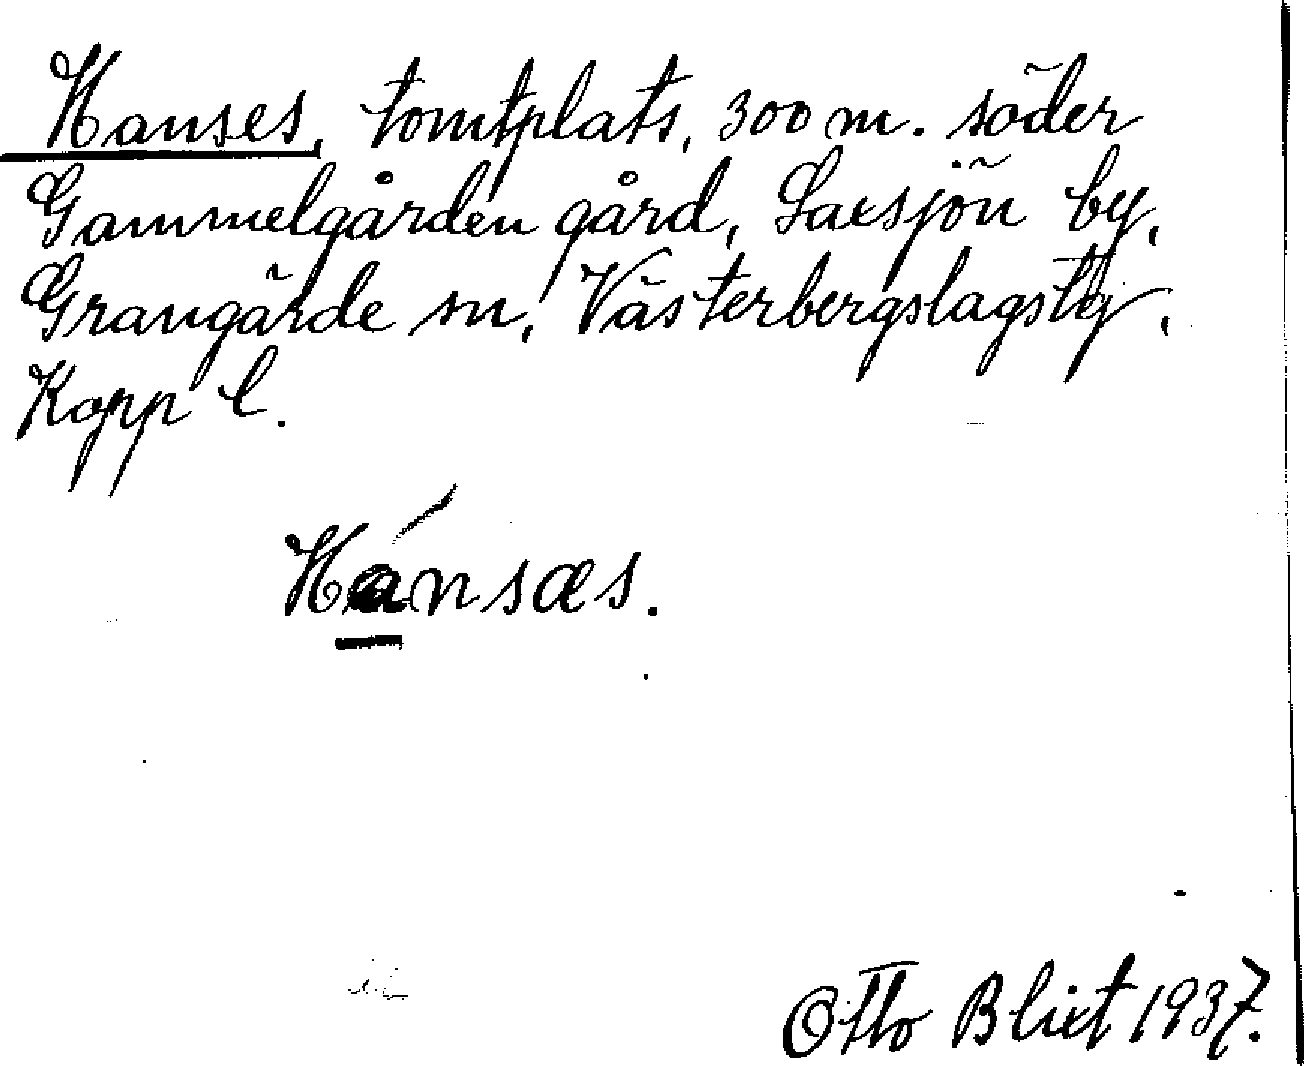 Hanses, tomtplats, 300 m. söder
Gammelgården gård, Saxsjön by,
Grangärde sn, Västerbergslagstg,
Kopp l.
Hánsæs.
Otto Blixt 1937.